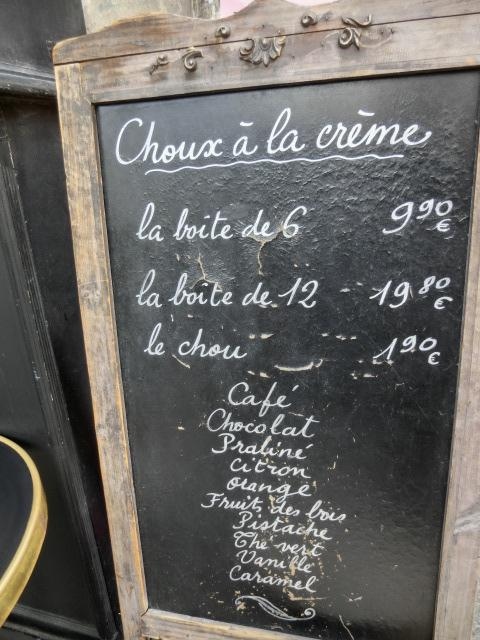 Choux à la crème
la boîte de 6 9,90 €
la boîte de 12 19,80 €
le chou 1,90 €
Café
Chocolat
Praliné
Citron
Orange
Fruits des bois
Pistache
Thé vert
Vanille
Caramel